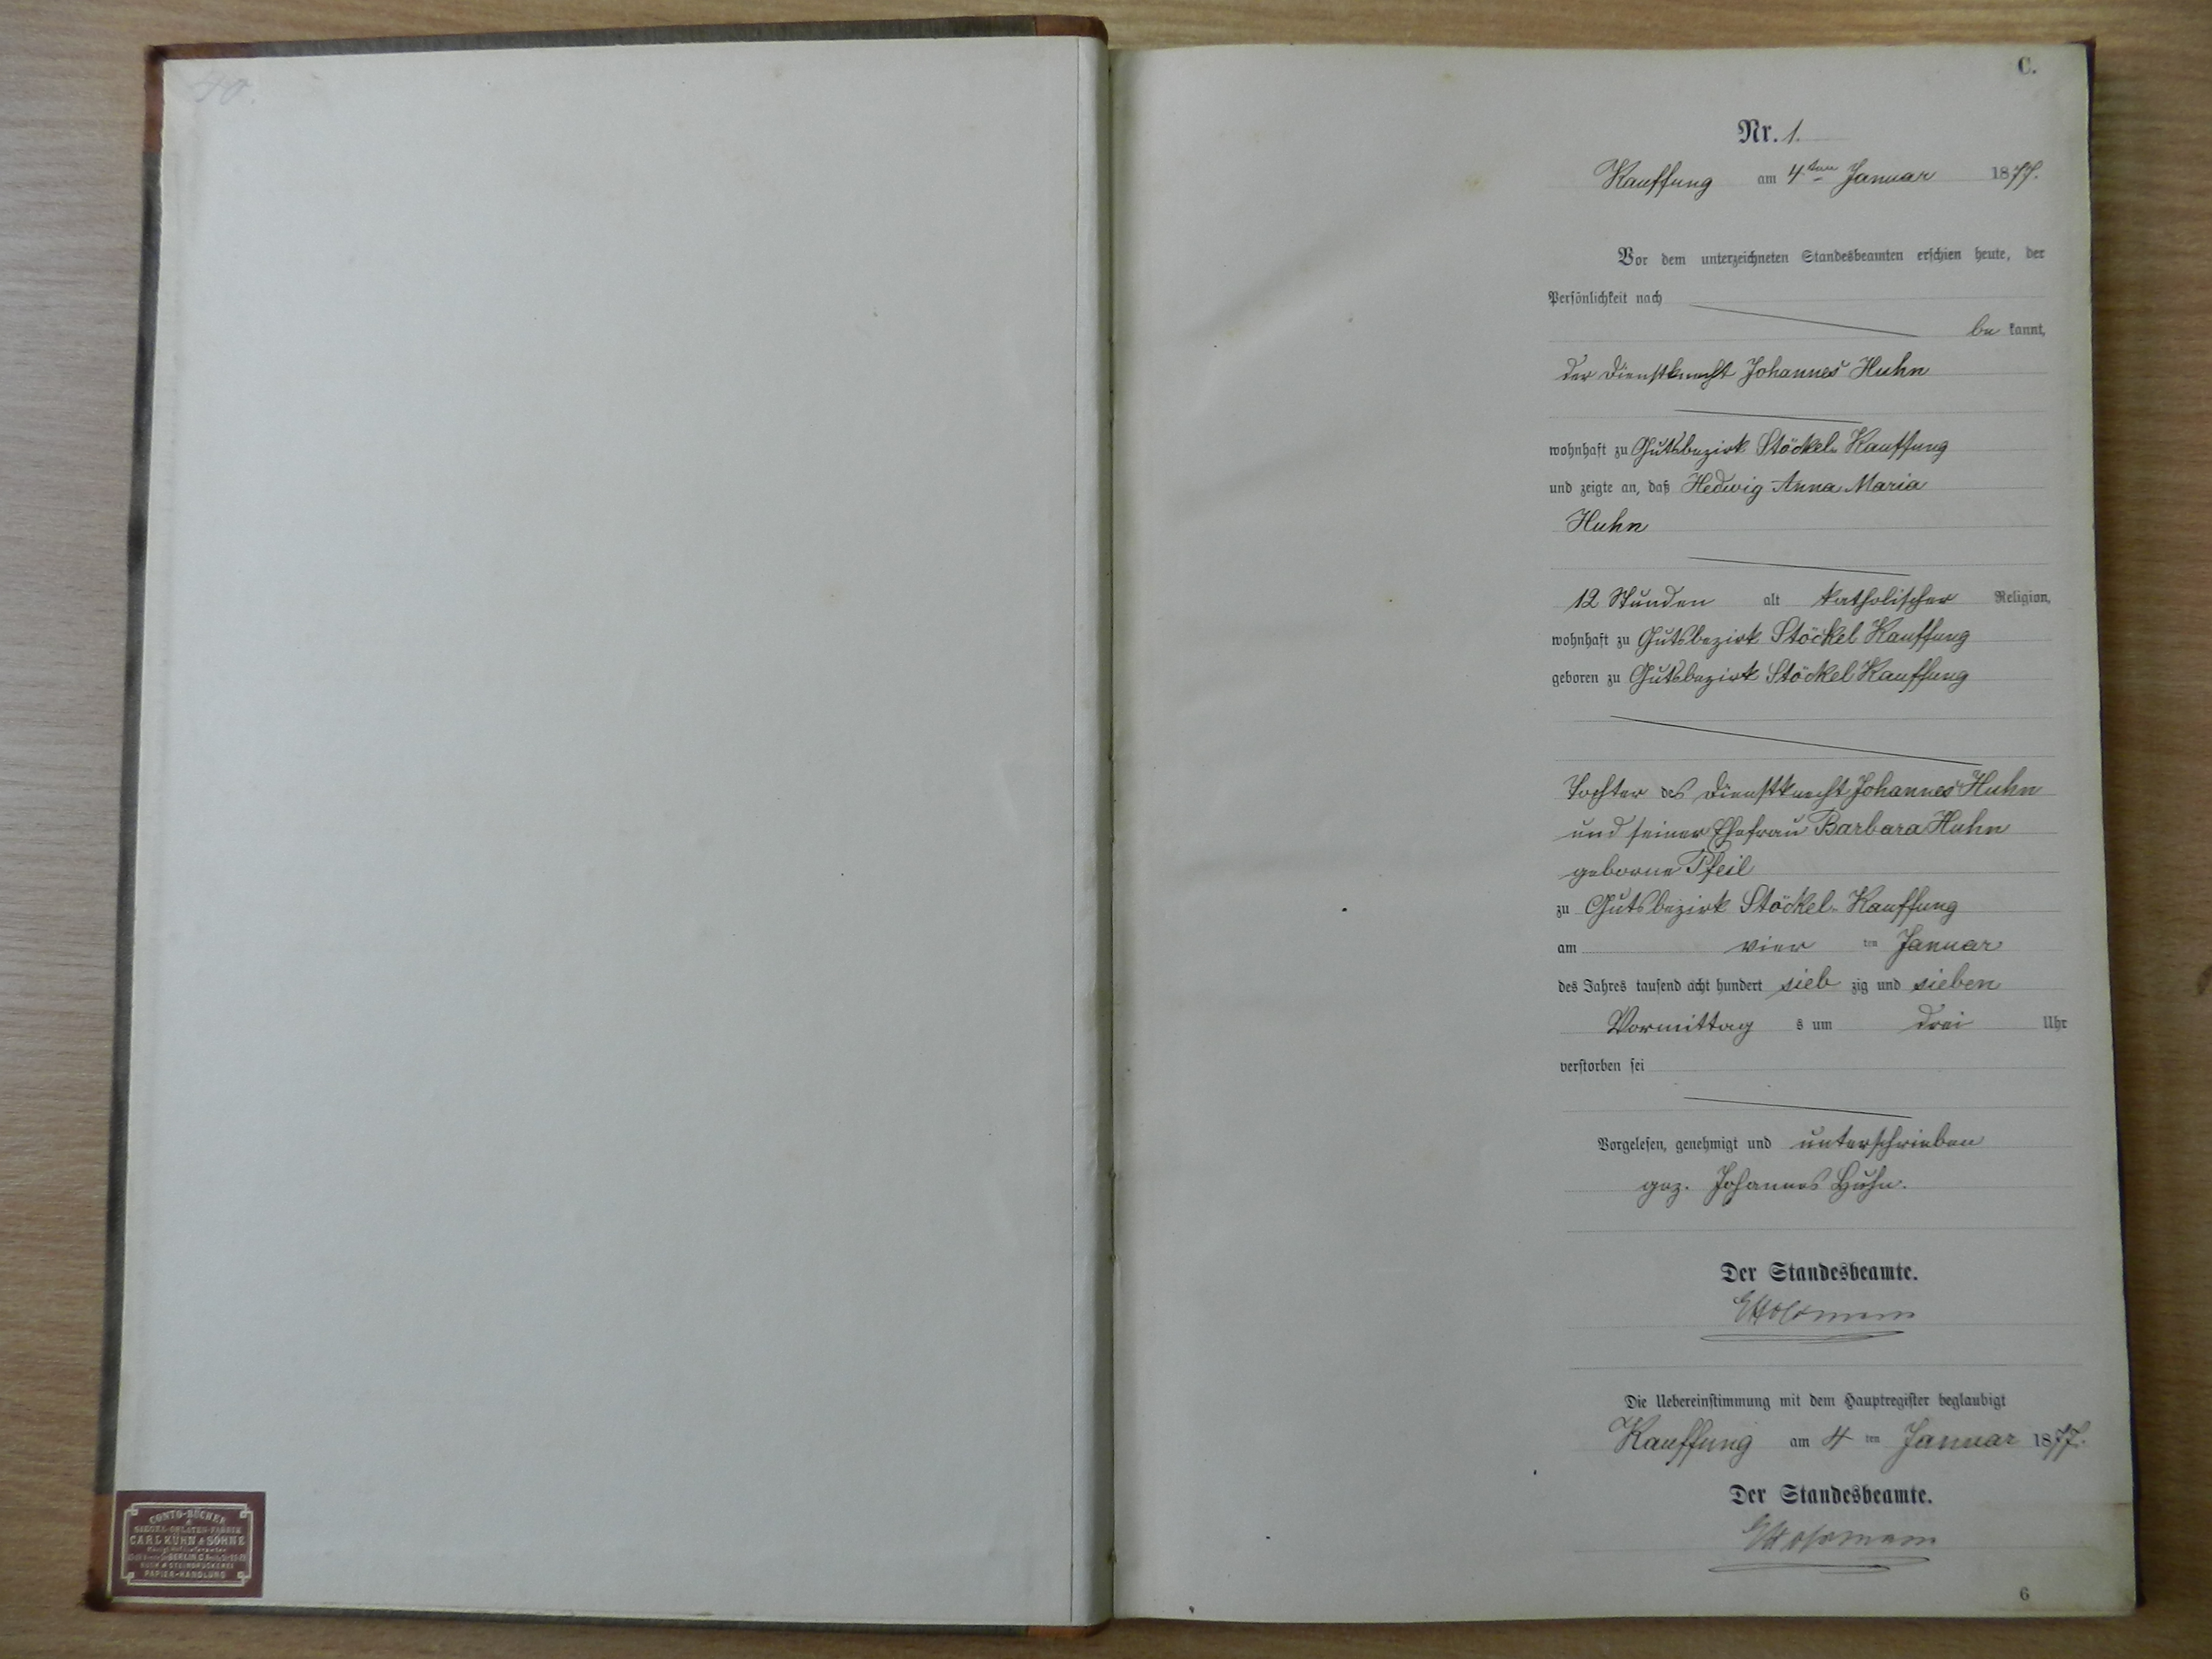 40.
C.
Nr. 1.
Kauffung am 4ten Januar 1877.
Vor dem unterzeichneten Standesbeamten erschien heute, der
Persönlichkeit nach
be kannt,
der Dienstknecht Johannes Huhn
wohnhaft zu Gutsbezirk Stöckel-Kauffung
und zeigte an, daß Hedwig Anna Maria
Huhn
12 Stunden alt katholischer Religion,
wohnhaft zu Gutsbezirk Stöckel Kauffung
geboren zu Gutsbezirk Stöckel Kauffung
Tochter des Dienstknecht Johannes Huhn
und seiner Ehefrau Barbara Huhn
geborne Pfeil
zu Gutsbezirk Stöckel-Kauffung
am vier ten Januar
des Jahres tausend acht hundert sieb zig und sieben
Vormittag s um drei Uhr
verstorben sei
Vorgelesen, genehmigt und unterschrieben
gez. Johannes Huhn.
Der Standesbeamte.
Die Uebereinstimmung mit dem Hauptregister beglaubigt
Kauffung am 4 ten Januar 1877.
Der Standesbeamte.
6
CONTO-BÜCHER
&
SIEGEL-OBLATEN-FABRIK
CARL KÜHN & SÖHNE
BERLIN C.
BUCH & STEINDRUCKEREI
PAPIER-HANDLUNG